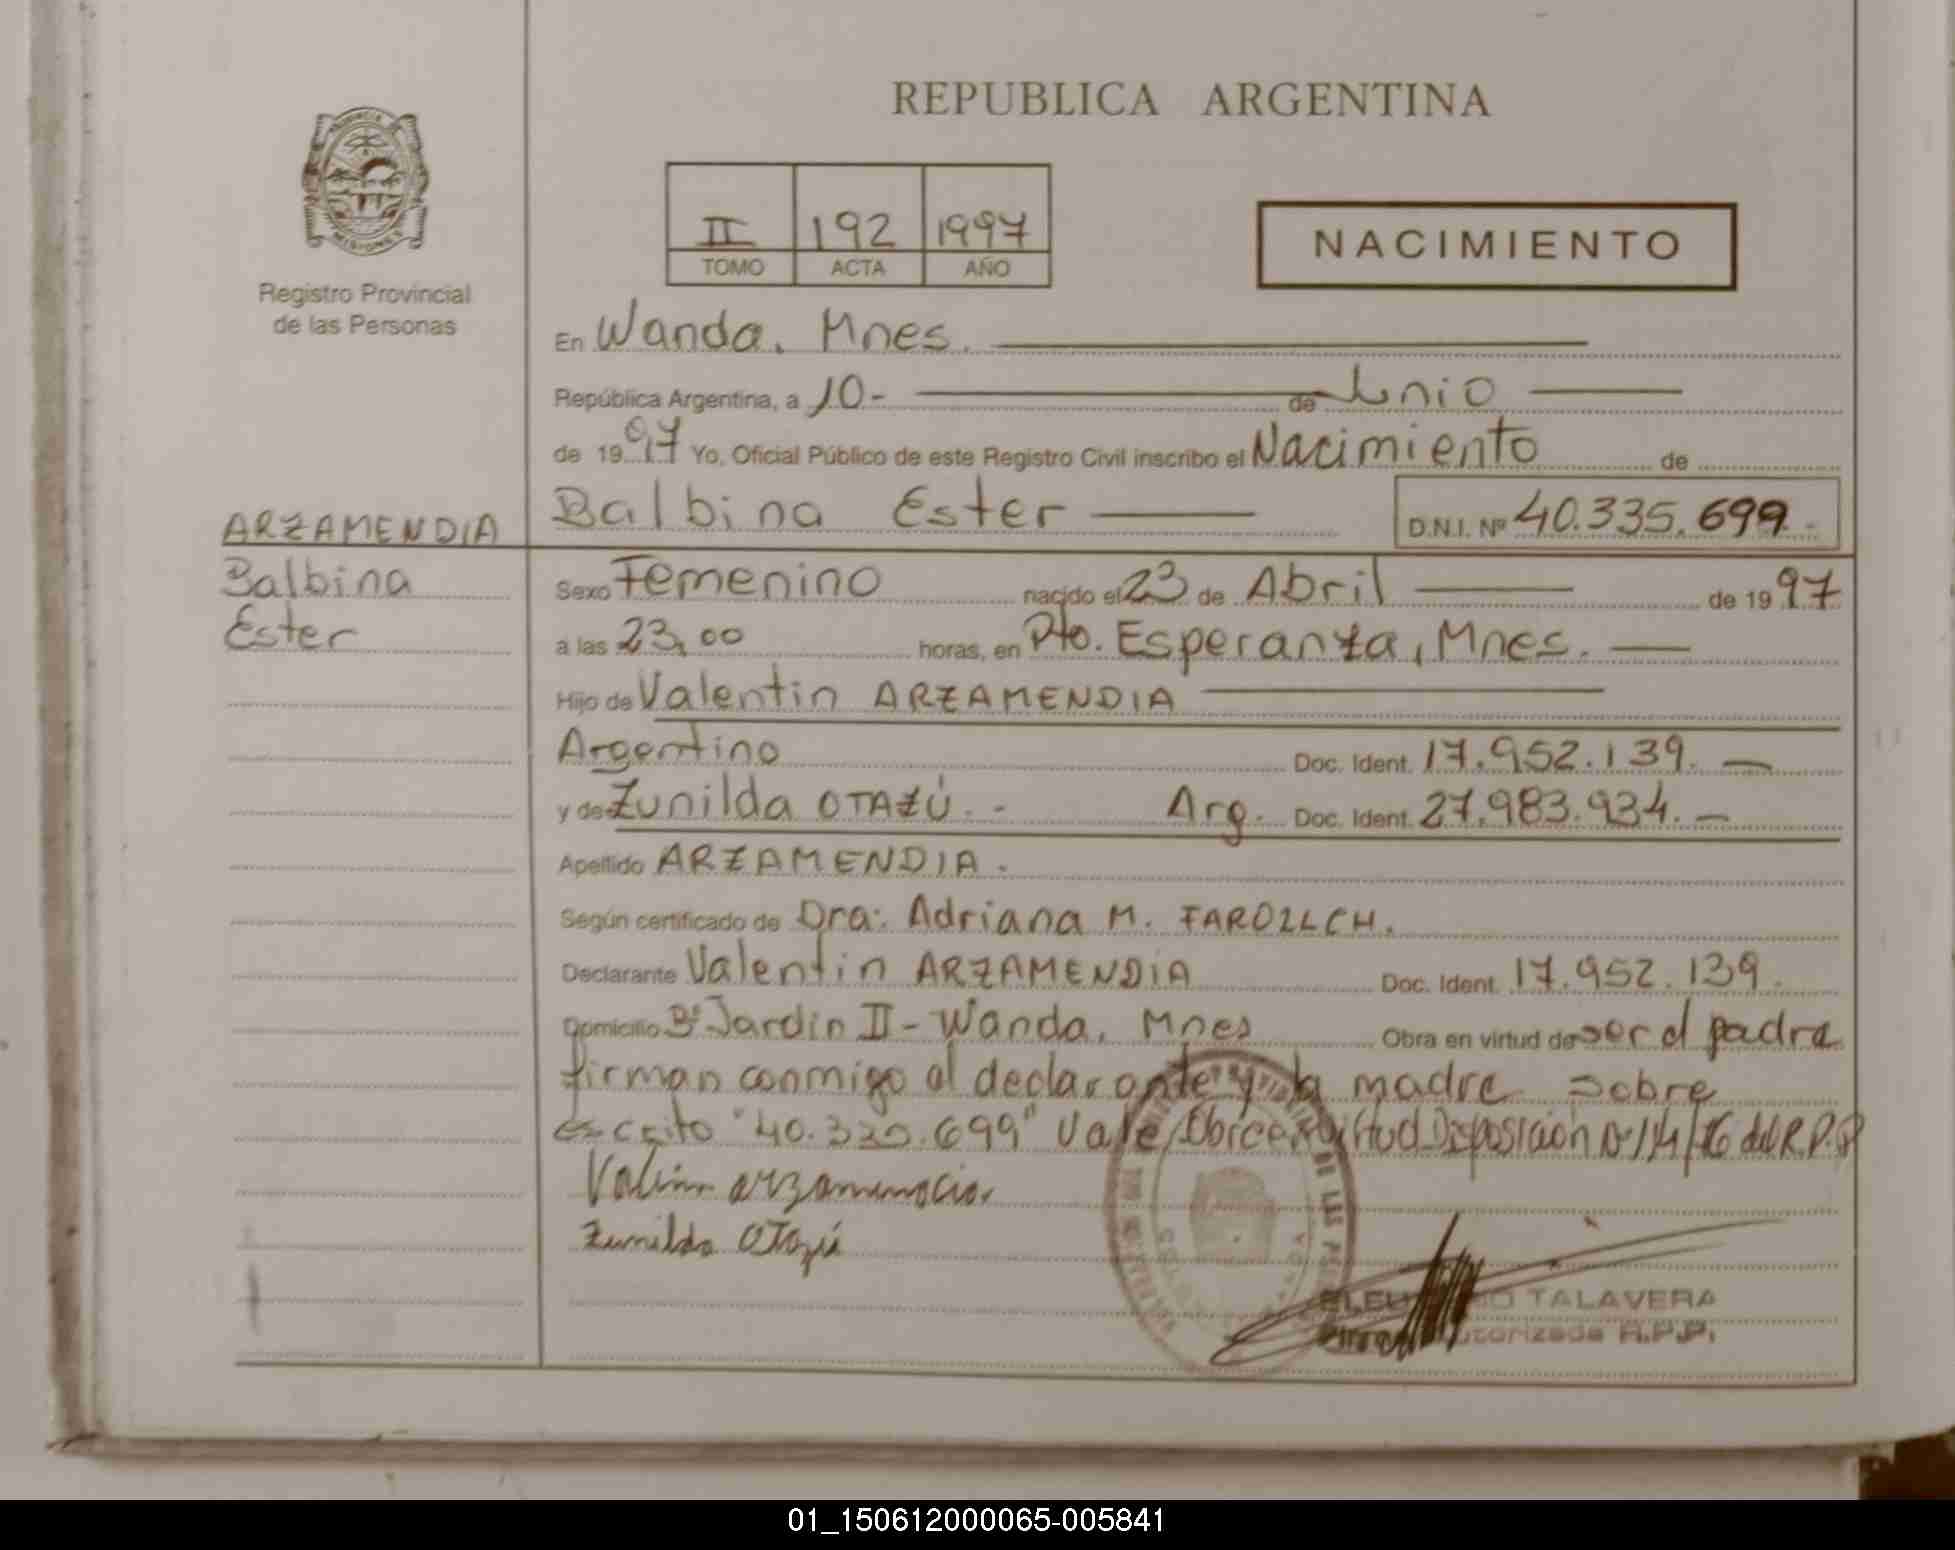 REPUBLICA ARGENTINA
PROVINCIA DE
MISIONES
Registro Provincial
de las Personas
II 192 1997
TOMO ACTA AÑO
NACIMIENTO
En Wanda. Mnes.
República Argentina, a 10- de Junio
de 1997 Yo, Oficial Público de este Registro Civil inscribo el Nacimiento de
ARZAMENDIA
Balbina
Ester
Balbina Ester D.N.I. Nº 40.335.699.-
Sexo Femenino nacido el 23 de Abril de 1997
a las 23,00 horas, en Pto. Esperanza, Mnes.
Hijo de Valentin ARZAMENDIA
Argentino Doc. Ident. 17.952.139.
y de Zunilda OTAZÚ.- Arg. Doc. Ident. 27.983.934.
Apellido ARZAMENDIA.
Según certificado de Dra: Adriana M.
Declarante Valentin ARZAMENDIA Doc. Ident. 17.952.139.
Domicilio Bº Jardin II - Wanda, Mnes Obra en virtud de ser el padre
firman conmigo el declarante y la madre sobre
escrito "40.335.699" Vale Disposición del R.P.P
arzamendia
Zunilda Otazú
TALAVERA
Autorizada R.P.P.
01_150612000065-005841